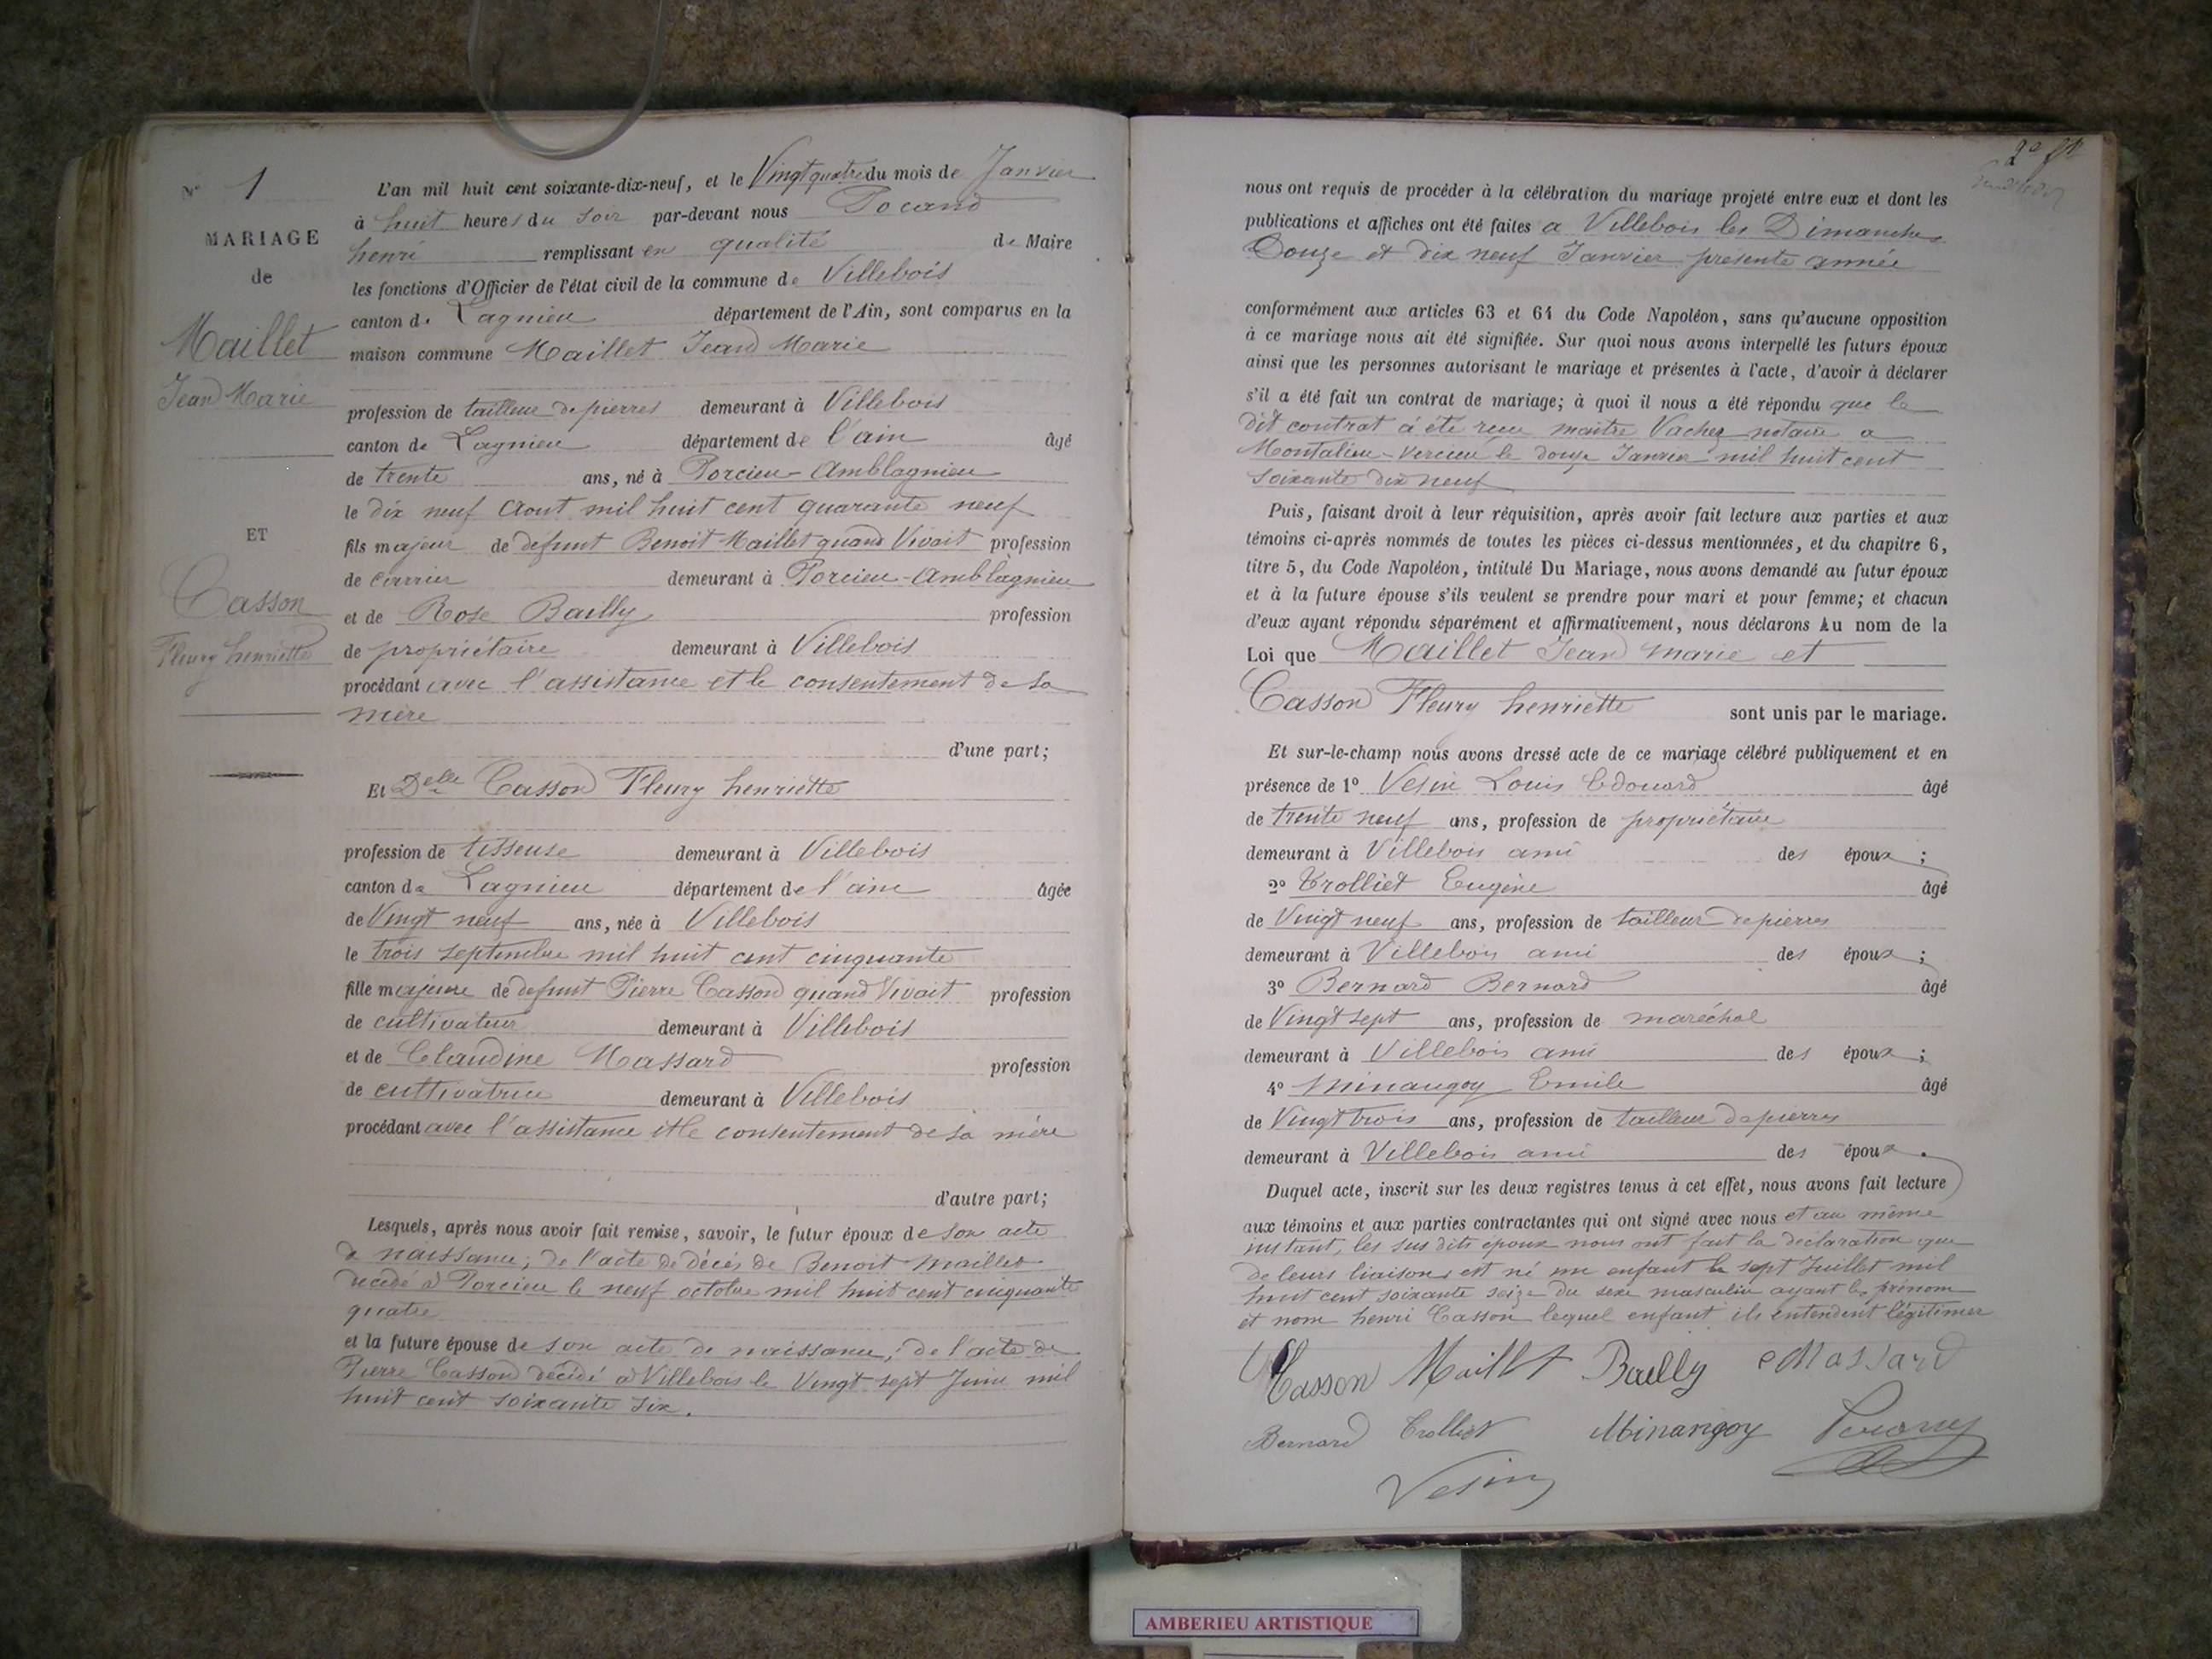 N° 1
MARIAGE
de
Maillet
Jean Marie
ET
Casson
Fleury henriette
L'an mil huit cent soixante-dix-neuf, et le Vingt quatre du mois de Janvier
à huit heures du soir par-devant nous Pocand
henri remplissant en qualité de Maire
les fonctions d'Officier de l'état civil de la commune de Villebois
canton de Lagnieu département de l'Ain, sont comparus en la
maison commune Maillet Jean Marie
profession de tailleur de pierres demeurant à Villebois
canton de Lagnieu département de l'ain âgé
de trente ans, né à Porcieu-Amblagnieu
le dix neuf Aout mil huit cent quarante neuf
fils majeur de defunt Benoit Maillet quand Vivait profession
de demeurant à Porcieu-Amblagnieu
et de Rose Bailly profession
de propriétaire demeurant à Villebois
procédant avec l'assistance et le consentement de sa
mère
d'une part;
Et Delle Casson Fleury henriette
profession de tisseuse demeurant à Villebois
canton de Lagnieu département de l'ain âgée
de Vingt neuf ans, née à Villebois
le trois septembre mil huit cent cinquante
fille majeure de defunt Pierre Casson quand Vivait profession
de cultivateur demeurant à Villebois
et de Claudine Massard profession
de cultivatrice demeurant à Villebois
procédant avec l'assistance et le consentement de sa mère
d'autre part;
Lesquels, après nous avoir fait remise, savoir, le futur époux de son acte
de naissance; de l'acte de décès de Benoit Maillet
decedé à Porcieu le neuf octobre mil huit cent cinquante
quatre
et la future épouse de son acte de naissance; de l'acte de
Pierre Casson décédé à Villebois le Vingt sept Juin mil
huit cent soixante six.
2e
nous ont requis de procéder à la célébration du mariage projeté entre eux et dont les
publications et affiches ont été faites a Villebois les Dimanches
Douze et dix neuf Janvier presente année
conformément aux articles 63 et 64 du Code Napoléon, sans qu'aucune opposition
à ce mariage nous ait été signifiée. Sur quoi nous avons interpellé les futurs époux
ainsi que les personnes autorisant le mariage et présentes à l'acte, d'avoir à déclarer
s'il a été fait un contrat de mariage; à quoi il nous a été répondu que le
dit contrat à été recu maitre Vacher notaire a
Montalieu-Vercieu le douze Janvier mil huit cent
soixante dix neuf
Puis, faisant droit à leur réquisition, après avoir fait lecture aux parties et aux
témoins ci-après nommés de toutes les pièces ci-dessus mentionnées, et du chapitre 6,
titre 5, du Code Napoléon, intitulé Du Mariage, nous avons demandé au futur époux
et à la future épouse s'ils veulent se prendre pour mari et pour femme; et chacun
d'eux ayant répondu séparément et affirmativement, nous déclarons Au nom de la
Loi que Maillet Jean marie et
Casson Fleury henriette sont unis par le mariage.
Et sur-le-champ nous avons dressé acte de ce mariage célébré publiquement et en
présence de 1° Vesin Louis Edouard âgé
de trente neuf ans, profession de propriétaire
demeurant à Villebois ami des époux ;
2° Trolliet Eugène âgé
de Vingt neuf ans, profession de tailleur de pierres
demeurant à Villebois ami des époux ;
3° Bernard Bernard âgé
de Vingt sept ans, profession de maréchal
demeurant à Villebois ami des époux ;
4° Minangoy Emile âgé
de Vingt trois ans, profession de tailleur de pierres
demeurant à Villebois ami des époux .
Duquel acte, inscrit sur les deux registres tenus à cet effet, nous avons fait lecture
aux témoins et aux parties contractantes qui ont signé avec nous et au même
instant, les sus dits époux nous ont fait la declaration que
de leurs liaisons est né un enfant le sept Juillet mil
huit cent soixante seize du sexe masculin ayant les prénom
et nom henri Casson lequel enfant ils entendent légitimer
Casson Maillet Bailly Massard
Bernard Trolliet Minangoy
Vesin
AMBERIEU ARTISTIQUE